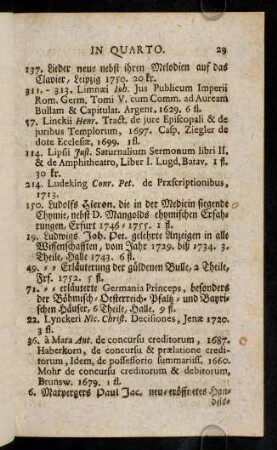 IN QUARTO. 29
137. Lieder neue nebst ihren Melodien auf das
Clavier, Leipzig 1750. 20 kr.
311. - 313. Limnæi Joh. Jus Publicum Imperii
Rom. Germ. Tomi V. cum Comm. ad Auream
Bullam & Capitulat. Argent. 1629. 6 fl.
57. Linckii Henr. Tract. de jure Episcopali & de
juribus Templorum, 1697. Casp. Ziegler de
dote Ecclesiæ, 1699. 1fl.
114. Lipsii Just. Saturnalium Sermonum libri II,
& de Amphitheatro, Liber I. Lugd. Batav. 1 fl.
30 kr.
214. Ludeking Conr. Pet. de Præscriptionibus,
1713.
150. Ludolfs Hieron. die in der Medicin siegende
Chymie, nebst D. Mangolds chymischen Erfah-
rungen, Erfurt 1746 - 1755. 1 fl.
19. Ludwigs Joh. Pet. gelehrte Anzeigen in alle
Wissenschafften, vom Jahr 1729. biß 1734. 3.
Theile, Halle 1743. 6 fl.
49. - - Erläuterung der güldenen Bulle, 2 Theile,
Frf. 1752. 5 fl.
71. - - erläuterte Germania Princeps, besonders
der Böhmisch-Oesterreich-Pfaltz- und Bayri-
schen Häuser, 6 Theile, Halle, 9 fl.
22. Lynckeri Nic. Christ. Decisiones, Jenæ 1720.
3 fl.
36. à Mara Ant. de concursu creditorum, 1687.
Haberkorn, de concursu & prælatione credi-
torum, Idem, de possessorio summariiss. 1660.
Mohr de concursu creditorum & debitorum,
Brunsw. 1679. 1 fl.
6. Marpergers Paul Jac. neu-eröffnetes Han-
dels-